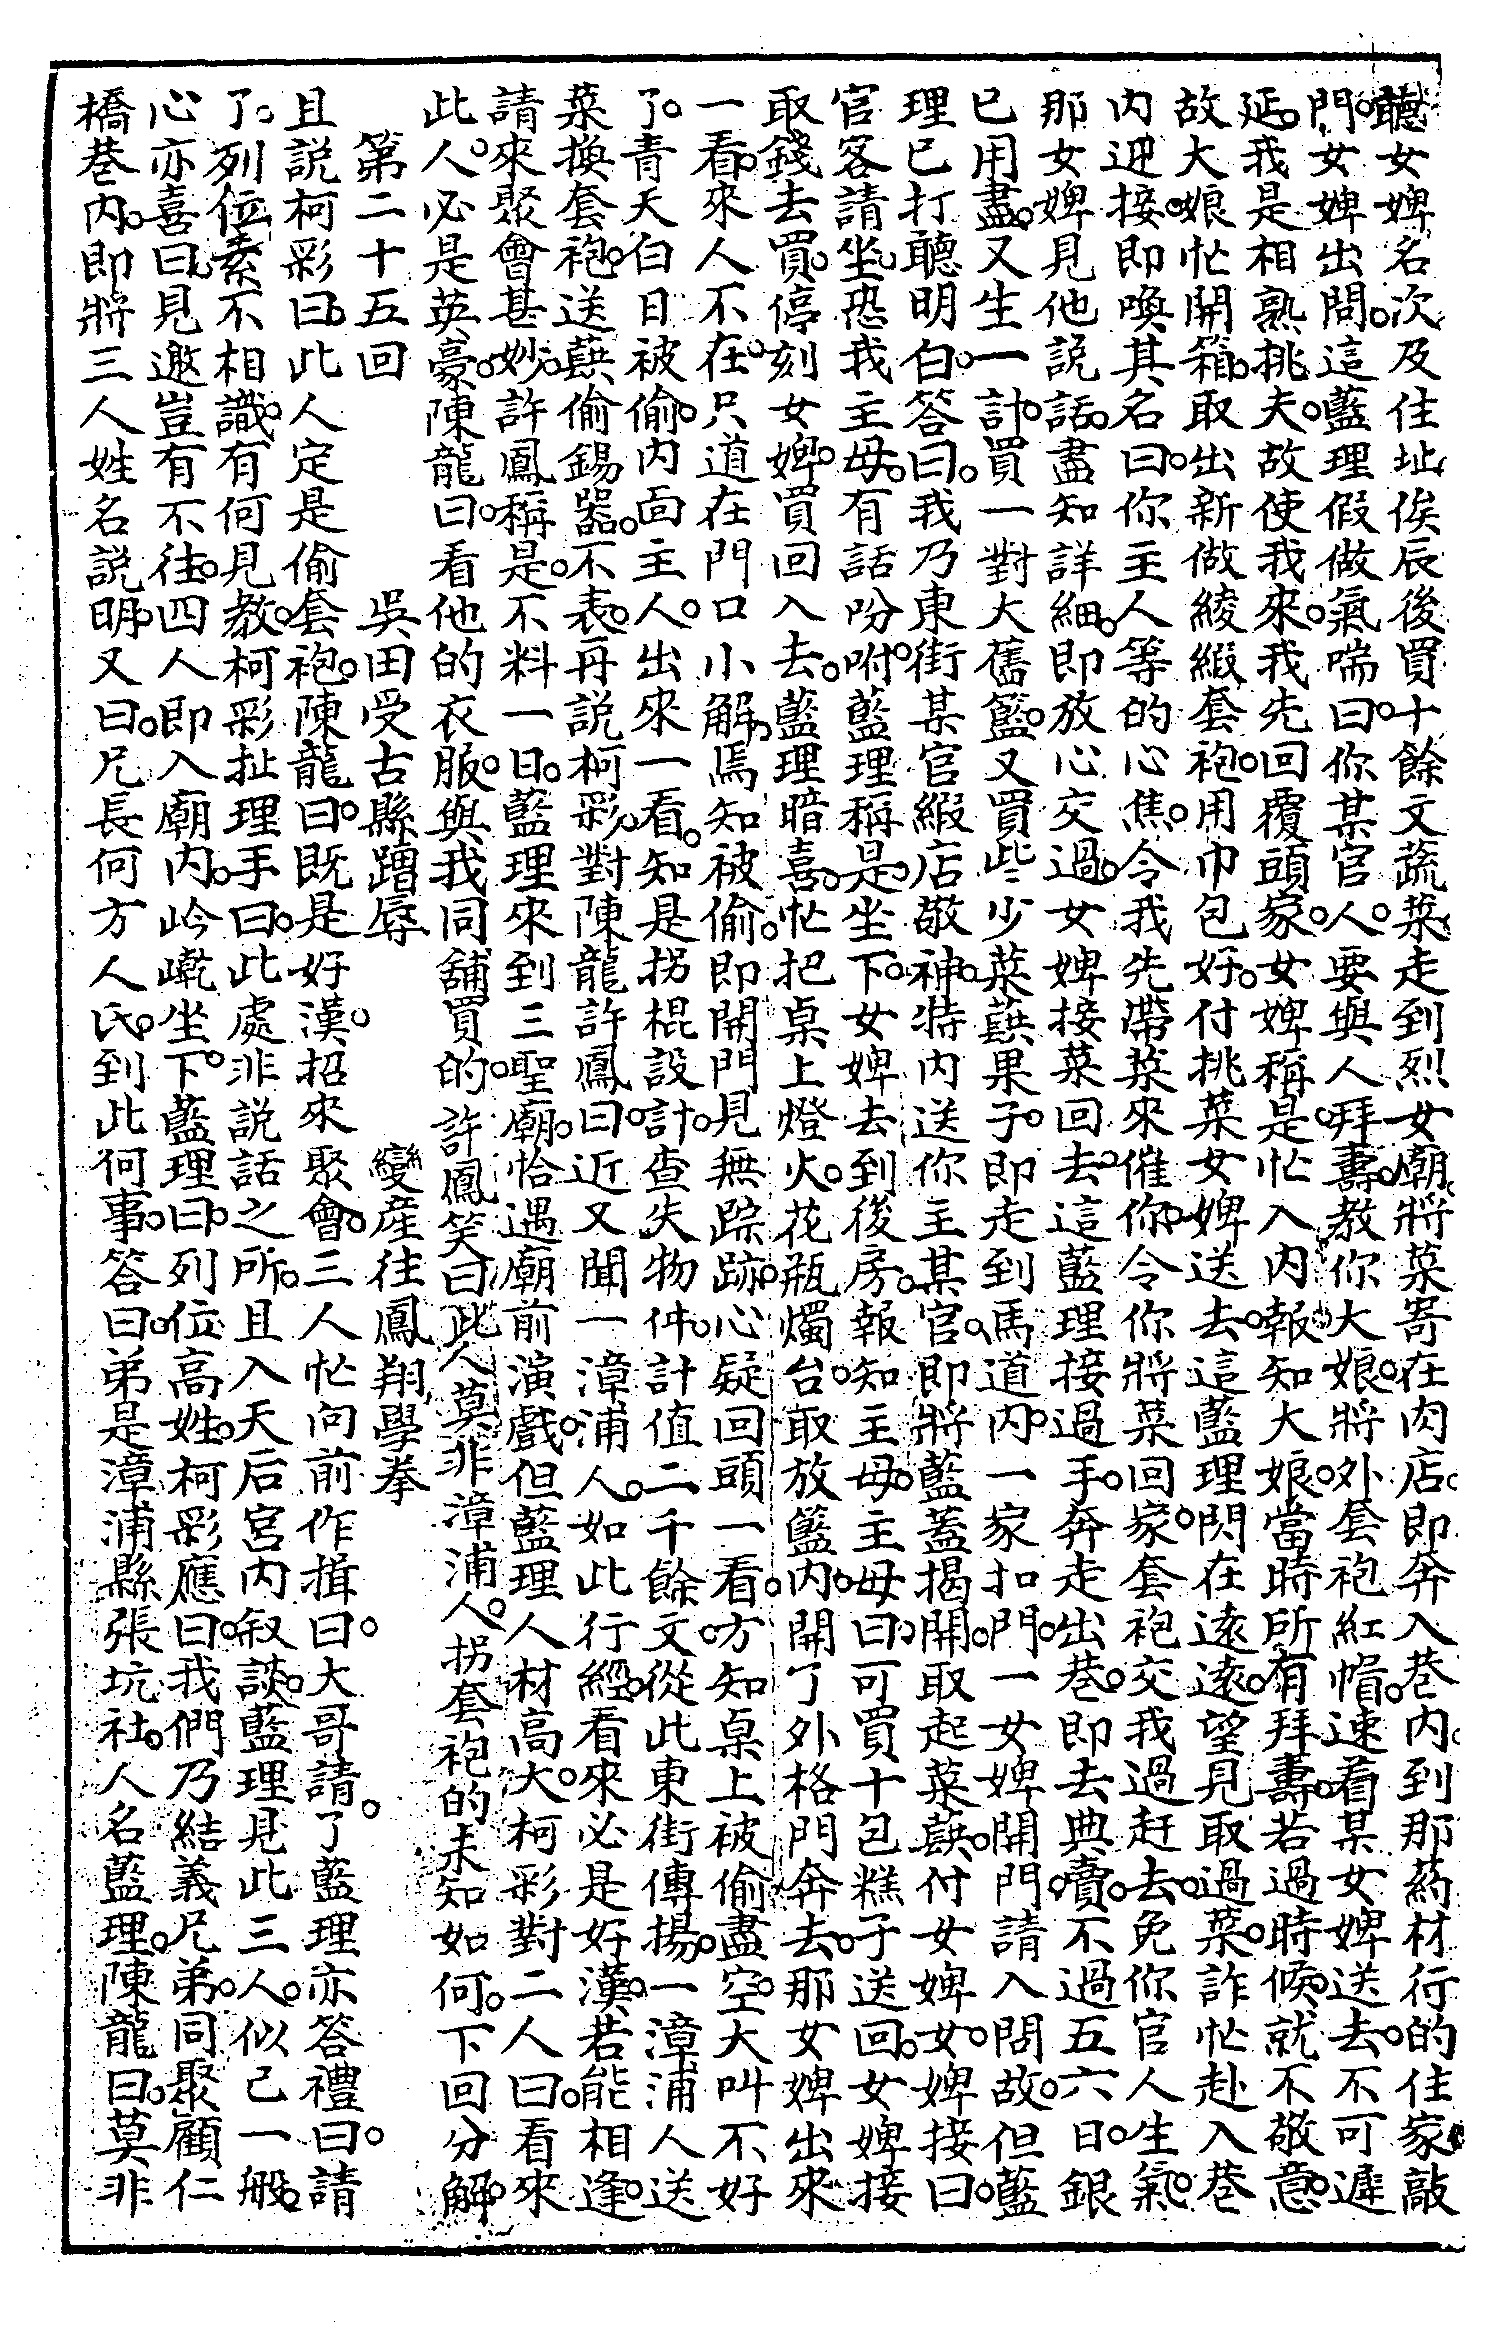 聽女婢名次及住址俟辰後買十餘文蔬菜走到烈女廟將菜寄在肉店。即奔入巷內。到那葯材行的住家敲
門。女婢出問。這藍理假做氣喘曰。你某官人。要與人拜壽。教你大娘。將外套袍紅帽。速着某女婢送去。不可遲
延。我是相熟挑夫。故使我來。我先回覆頭家。女婢稱是。忙入內報知大娘。當時所有拜壽。若過時候。就不敬意。
故大娘忙開箱。取出新做綾緞套袍。用巾包好。付挑菜女婢送去。這藍理閃在遠遠。望見取過菜。詐忙赴入巷
內迎接。即喚其名曰。你主人等的心焦。令我先帶菜來催你。令你將菜回家。套袍交我過赶去。免你官人生氣。
那女婢見他説話。盡知詳細。即放心交過。女婢接菜回去。這藍理接過手。奔走出巷。即去典賣。不過五六日。銀
已用盡。又生一計。買一對大舊籃。又買些少菜䔖果子。即走到馬道內。一家扣門。一女婢開門。請入問故。但藍
理已打聽明白。答曰。我乃東街某官緞店敬神。特內送你主某官。即將藍蓋揭開。取起菜䔖。付女婢。女婢接曰。
官客請坐。恐我主母。有話吩咐。藍理稱是。坐下。女婢去到後房。報知主母。主母曰。可買十包糕子送回。女婢接
取錢去買。停刻女婢。買回入去。藍理暗喜。忙把桌上燈火。花瓶燭台。取放籃內。開了外格門奔去。那女婢出來
一看。來人不在。只道在門口小解。焉知被偷。即開門見無踪跡。心疑回頭一看。方知桌上被偷盡空。大叫不好
了。青天白日被偷。內面主人。出來一看。知是拐棍設計。查失物件。計值二千餘文。從此東街傳揚。一漳浦人送
菜換套袍。送䔖偷錫器。不表。再説柯彩。對陳龍許鳳曰。近又聞一漳浦人。如此行經。看來必是好漢。若能相逢。
請來聚會甚妙。許鳳稱是。不料一日。藍理來到三聖廟。恰遇廟前演戲。但藍理人材高大。柯彩對二人曰。看來
此人。必是英豪。陳龍曰。看他的衣服。與我同舖買的。許鳳笑曰此人莫非漳浦人。拐套袍的。未知如何。下回分解。
第二十五回　吳田受古縣蹧辱　變産往鳳翔學拳
且説柯彩曰。此人定是偷套袍。陳龍曰。既是好漢。招來聚會。三人忙向前作揖曰。大哥請。了藍理亦答禮曰。請
了。列位素不相識。有何見教。柯彩扯理手曰。此處非説話之所。且入天后宮內叙談。藍理見此三人。似己一般。
心亦喜曰。見邀豈有不往。四人即入廟內。岭𡾰坐下。藍理曰。列位高姓。柯彩應曰。我們乃結義兄弟。同聚顧仁
橋巷內。即將三人姓名説明。又曰。兄長何方人氏。到此何事。答曰。弟是漳浦縣張坑社。人名藍理。陳龍曰。莫非